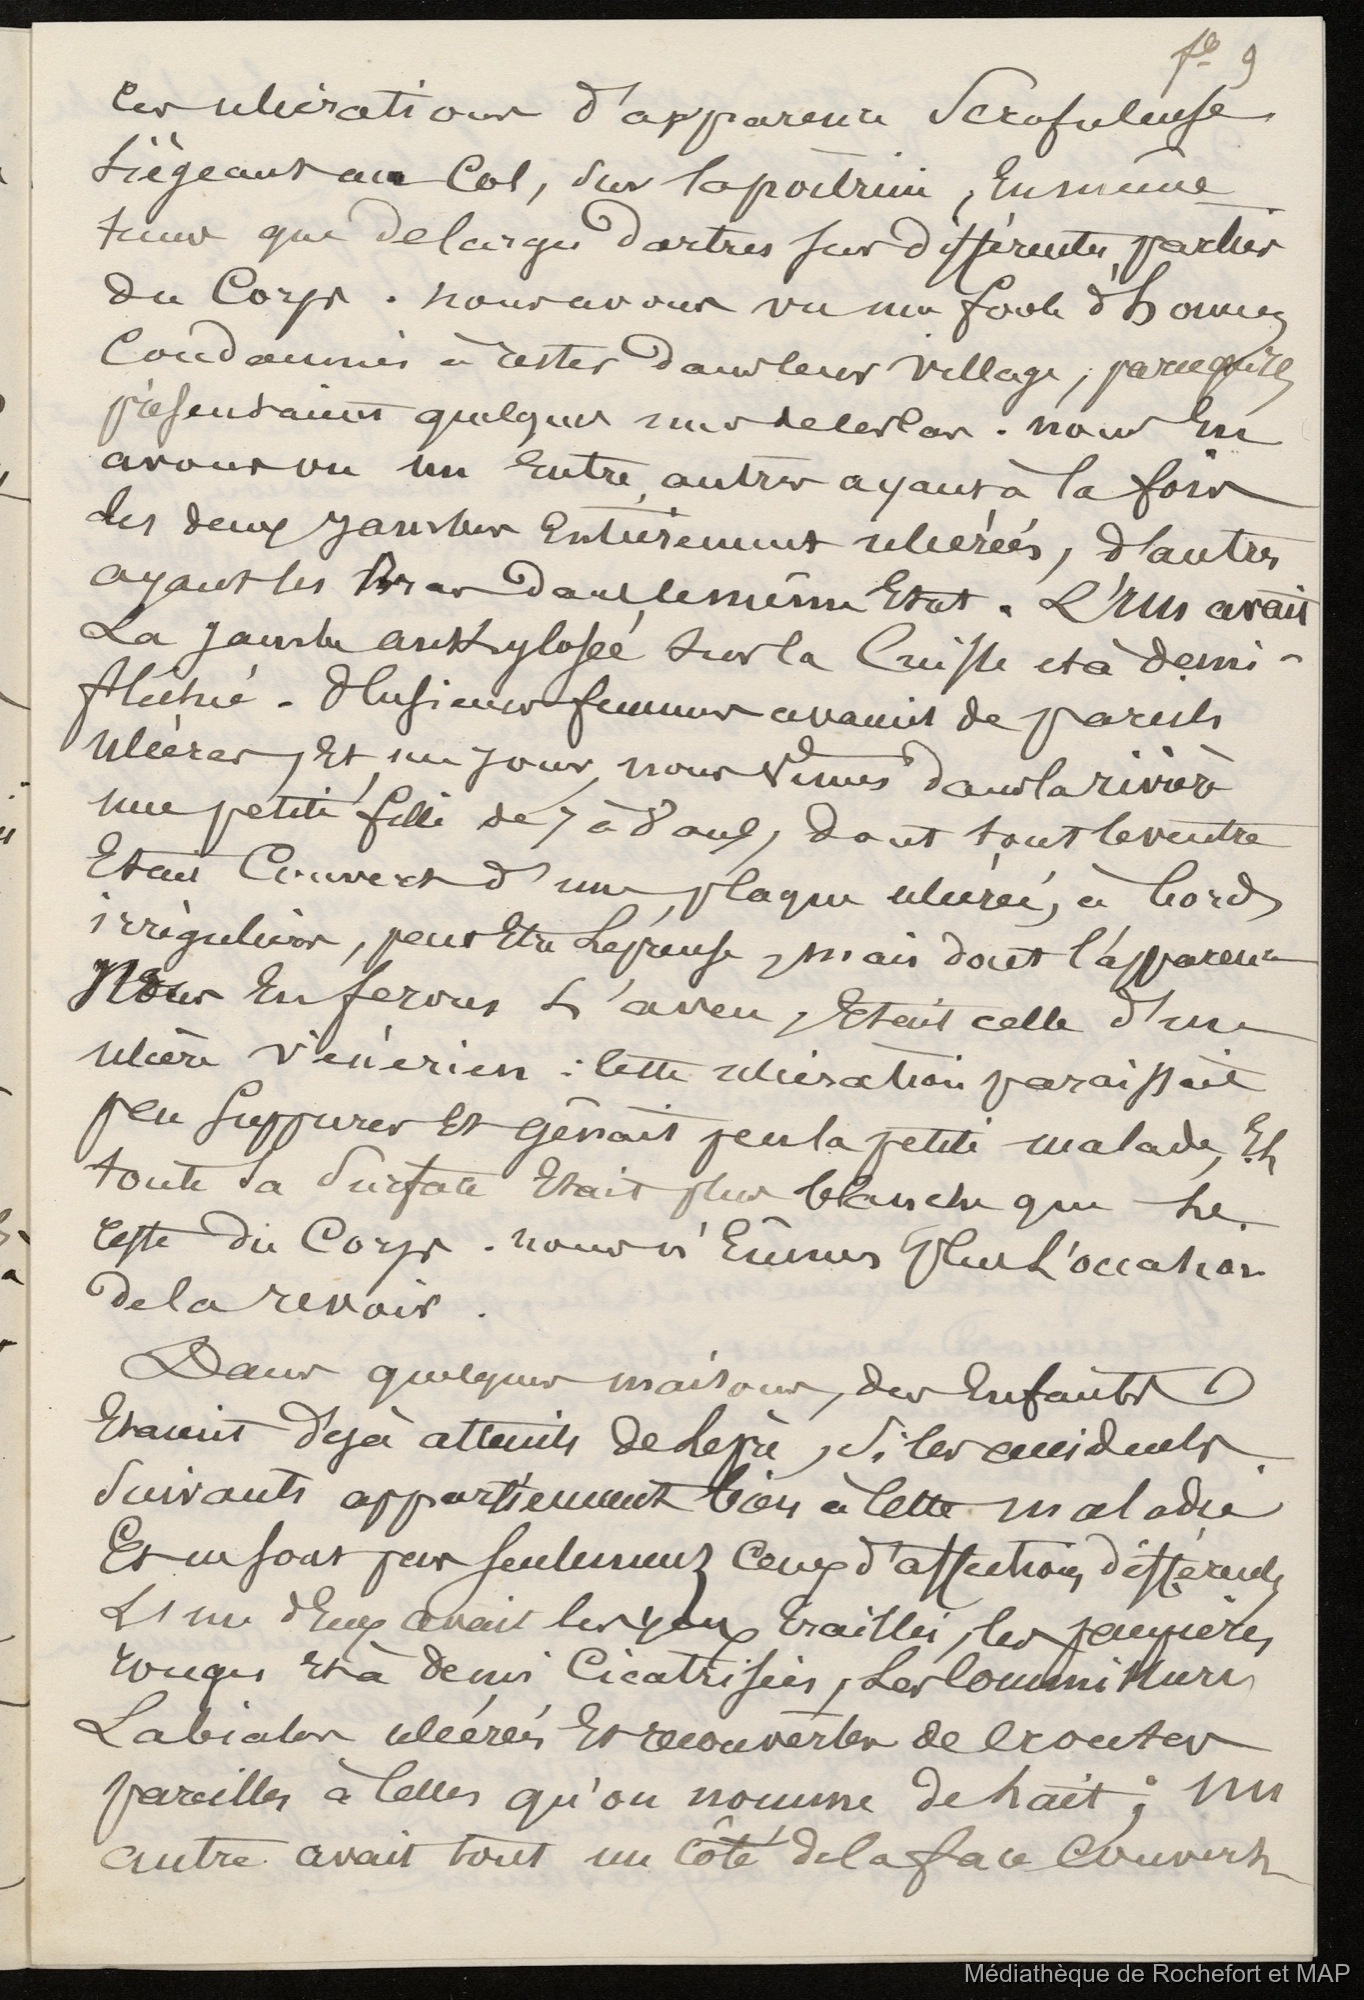 fo 9
Ces ulcérations d'apparence Scrofuleuse
siègeant au Col, sur la poitrine, En même
temps que de larges Dartres sur différentes parties
du Corps. nous avons vu une foule d'hommes
Condamnés à rester dans leur village, parcequ'ils
présentaient quelques uns de ces cas. nous En
avons vu un Entre autres ayant à la fois
les deux jambes Entièrement ulcérées, d'autres
ayant les Bras dans le même Etat. L'Un avait
La jambe ankylosée sur la Cuisse et à demi-
fléchie. Plusieurs femmes avaient de pareils
ulcères, Et, un jour, nous vîmes dans la rivière
une petite fille de 7 à 8 ans, dont tout le ventre
Etait Couvert d'une plaque ulcérée, à bords
irréguliers, peut Etre Lépreuse, mais dont l'apparence
Nous En ferons L'aveu, Etait celle d'un
ulcère vénérien : Cette ulcération paraissait
peu suppurer Et gênait peu la petite malade, Et
toute Sa Surface Etait plus blanche que le
reste du Corps. nous n'Eûmes plus L'occasion
de la revoir.
Dans quelques maisons, des Enfants
Etaient déjà atteints de Lèpre, Si les accidents
Suivants appartiennent bien à Cette maladie
Et ne sont pas seulement Ceux d'affections différentes
L'un d'Eux avait les yeux Eraillés, les paupières
rouges Et à demi Cicatrisées, Les Commissures
Labiales ulcérées Et recouvertes de Croutes
pareilles à Celles qu'on nomme de lait ; un
autre avait tout un côté de la face Couvert
Médiathèque de Rochefort et MAP